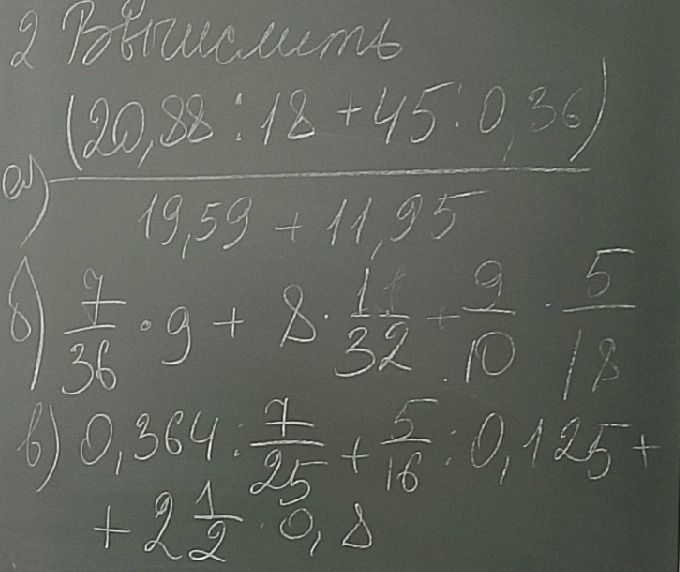 2 Вычислить
а) (20,88 : 18 + 45 : 0,36)
19,59 + 11,95
б) 7/36 · 9 + 8 · 11/32 + 9/10 · 5/18
в) 0,364 : 7/25 + 5/16 : 0,125 +
+ 2 1/2 · 0,8